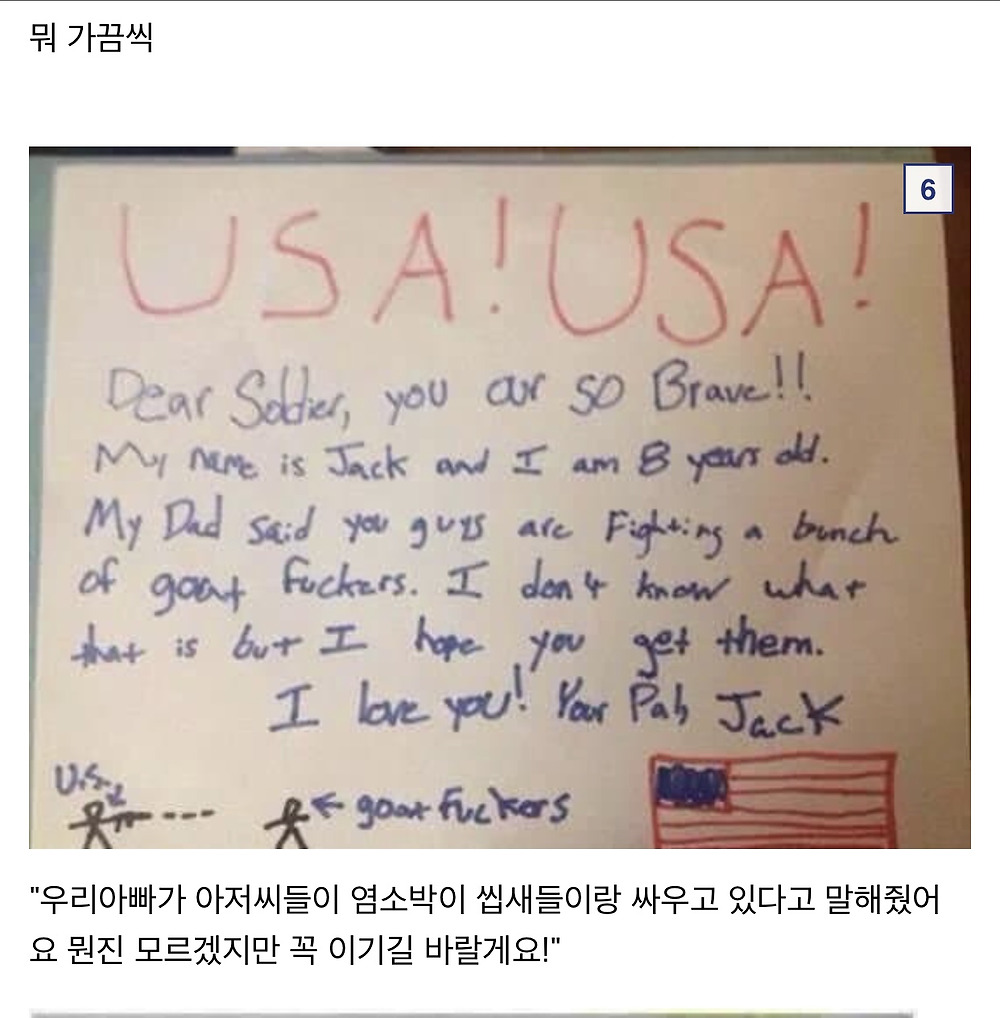 뭐 가끔씩
6
USA! USA!
Dear Soldier, you our so Brave!!
My name is Jack and I am 8 years old.
My Dad said you guys are Fighting a bunch
of goat fuckers. I don't know what
that is but I hope you get them.
I love you! Your Pal, Jack
U.S.
goat fuckers
"우리아빠가 아저씨들이 염소박이 씹새들이랑 싸우고 있다고 말해줬어
요 뭔진 모르겠지만 꼭 이기길 바랄게요!"